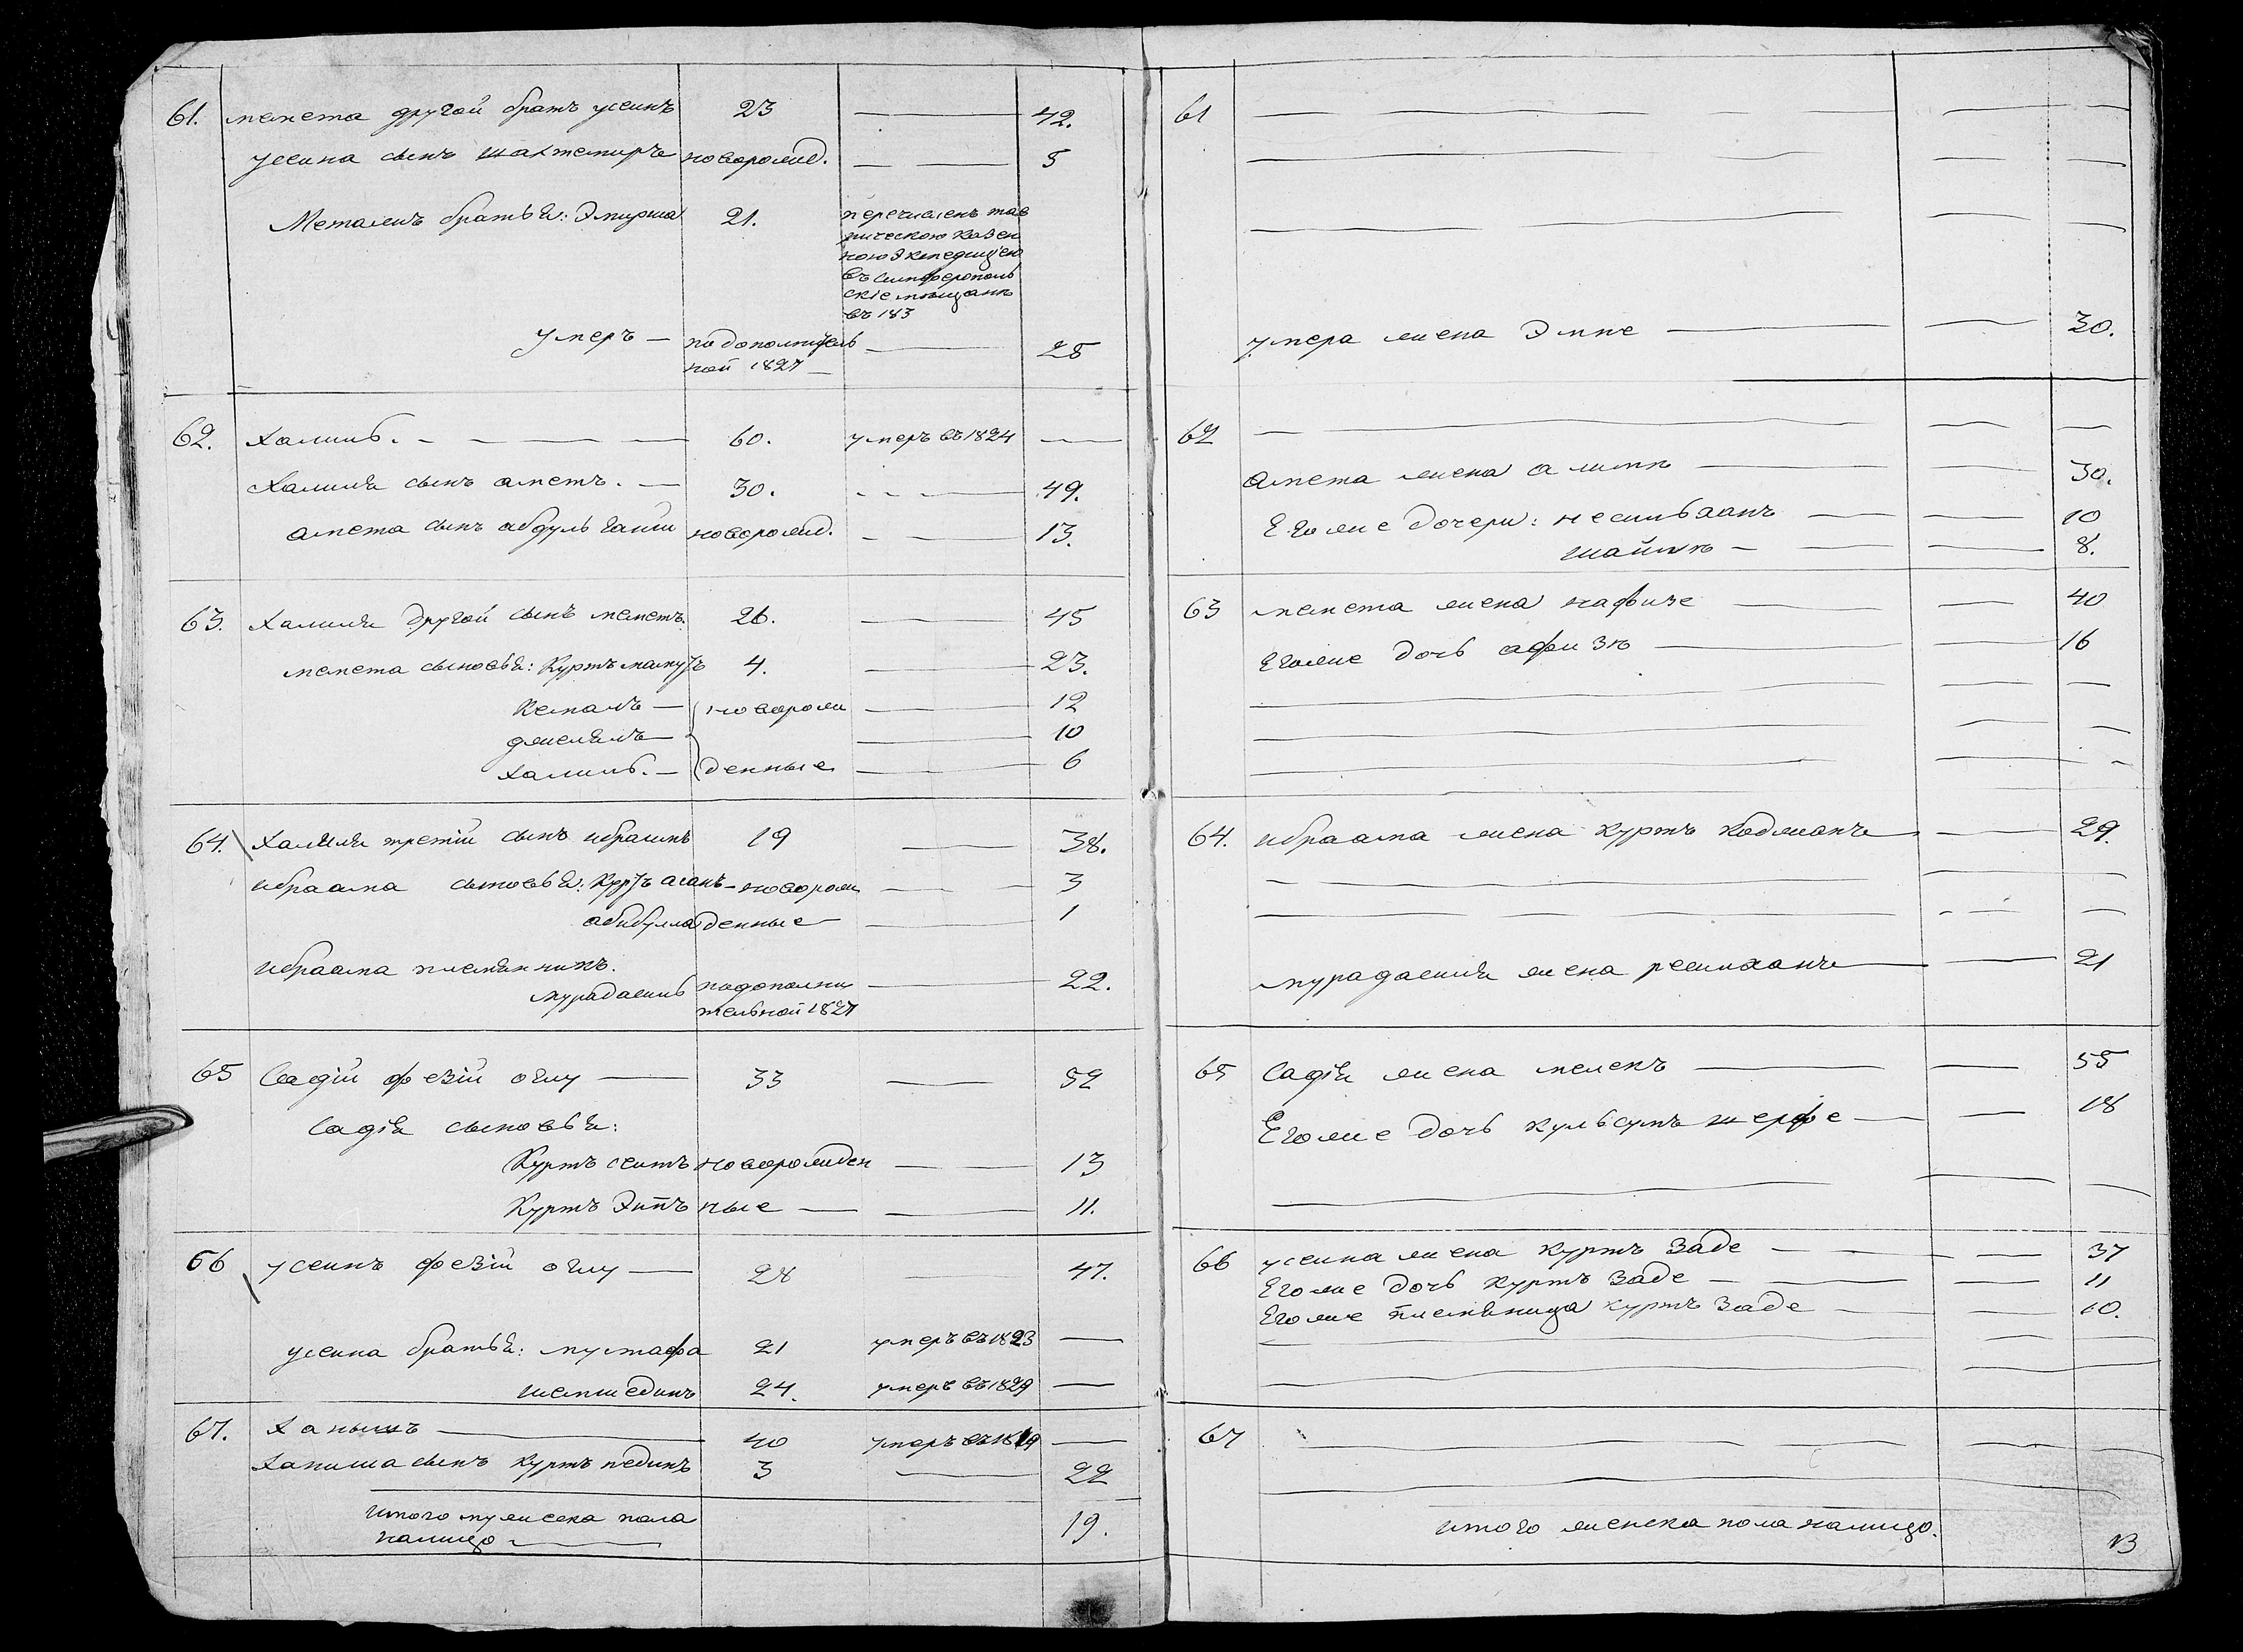 61. мемета другой братъ усеинъ 23 42.
усеина сынъ шахтемиръ новорожд. 5
Металипъ братья: Эмирша 21. перечисленъ тав
рическою казен
ною Экспедицiею
въ симферополь
скiе мещане
въ 183
умеръ — по дополнитель
ной 1827 28
62. Халиль. 60. умеръ въ 1824
Халиля сынъ аметъ. 30. 49.
амета сынъ абдуль гани новорожд. 13.
63. Халиля другой сынъ меметъ. 26. 45
мемета сыновья: Куртъ мамутъ 4. 23.
Кемалъ — новорож 12
джелялъ — 10
халиль. — денные 6
64. Халиля третiй сынъ ибраимъ 19 38.
ибраима сыновья: Куртъ асанъ — новорож 3
абибулла денные 1
ибраима племянникъ.
мурадасиль по дополни 22.
тельной 1827
65 Садiй фезiй оглу 33 52
Садiя сыновья:
Куртъ сеитъ новорожден 13
Куртъ Эипъ ные 11.
66 усеинъ фезiй оглу 28 47.
усеина братья: мустафа 21 умеръ въ 1823
шемшединъ 24. умеръ въ 1829
67. Ханышъ 40 умеръ въ 1819
Ханыша сынъ куртъ пединъ 3 22
итого мужеска пола
налицо 19.
61
умера жена Эмие 30.
62
амета жена алиме 30.
Его же дочери: несильханъ 10
шайме 8.
63 мемета жена нафизе 40
Его же дочь афизе 16
64. ибраима жена куртъ каджанъ 29.
мурадасиля жена решиханъ 21
65 Садiя жена мелекъ 55
Его же дочь кульсумъ шерфе 18
66 усеина жена куртъ заде 37
Его же дочь куртъ заде 11
Его же племяница куртъ заде 10.
67
итого женска пола налицо. 13